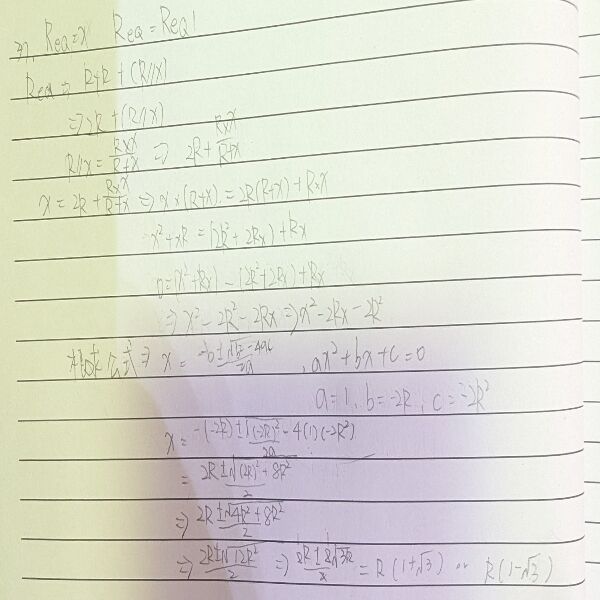 37. Req = x Req = Req1
Req = R+R + (R//x)
⇒ 2R + (R//x)
R//x = R×x/R+x ⇒ 2R + R×x/R+x
x = 2R + R×x/R+x ⇒ x×(R+x) = 2R(R+x) + R×x
x²+xR = (2R²+2Rx)+Rx
0 = (x²+Rx) - (2R²+2Rx)+Rx
⇒ x²-2R²-2Rx ⇒ x²-2Rx-2R²
公式 ⇒ x = -b±√b²-4ac/2a , ax²+bx+c=0
a=1, b=-2R, c=-2R²
x = -(-2R)±√(-2R)²-4(1)(-2R²)/2a
= 2R±√(2R)²+8R²/2
⇒ 2R±√4R²+8R²/2
⇒ 2R±√12R²/2 ⇒ 2R±2√3R/2 = R(1+√3) or R(1-√3)